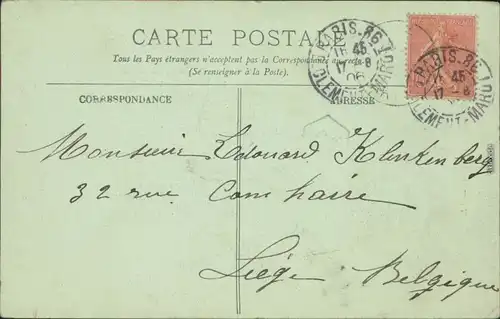 CARTE POSTALE
Tous les Pays étrangers n'acceptent pas la Correspondance au recto
(Se renseigner à la Poste).
CORRESPONDANCE
ADRESSE
PARIS.86
16 45
17 - 8
06
CLEMENT-MAROT
PARIS.86
45
17 8
CLEMENT-MAROT
Monsieur Edouard Klinkenberg
32 rue Comhaire
Liége Belgique